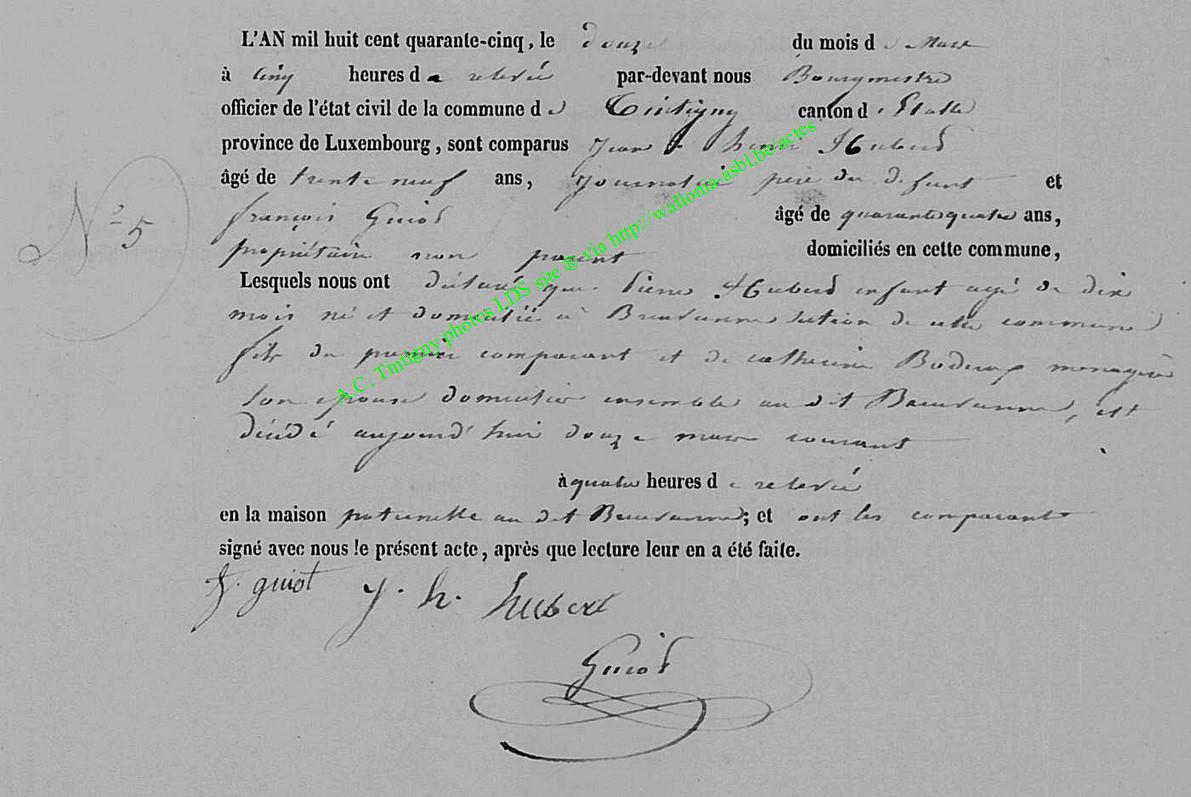 L'AN mil huit cent quarante-cinq, le douze du mois de Mars
à cinq heures de relevée par-devant nous Bourgmestre
officier de l'état civil de la commune de Tintigny canton d'Etalle
province de Luxembourg, sont comparus Jean henri Hubert
âgé de trente neuf ans, journalier père du défunt et
N° 5
françois Guiot âgé de quarante quatre ans,
propriétaire non parent domiciliés en cette commune,
Lesquels nous ont déclaré que Pierre Hubert enfant agé de dix
mois né et domicilié à section de cette commune
fils du premier comparant et de catherine menagère
son épouse domiciliés ensemble au dit est
décédé aujourd'hui douze mars courant
à quatre heures de relevée
en la maison paternelle au dit ; et ont les comparants
signé avec nous le présent acte, après que lecture leur en a été faite.
f. guiot j. h. hubert
Guiot
A.C. Tintigny photos LDS site & via http://wallonia-asbl.be/actes